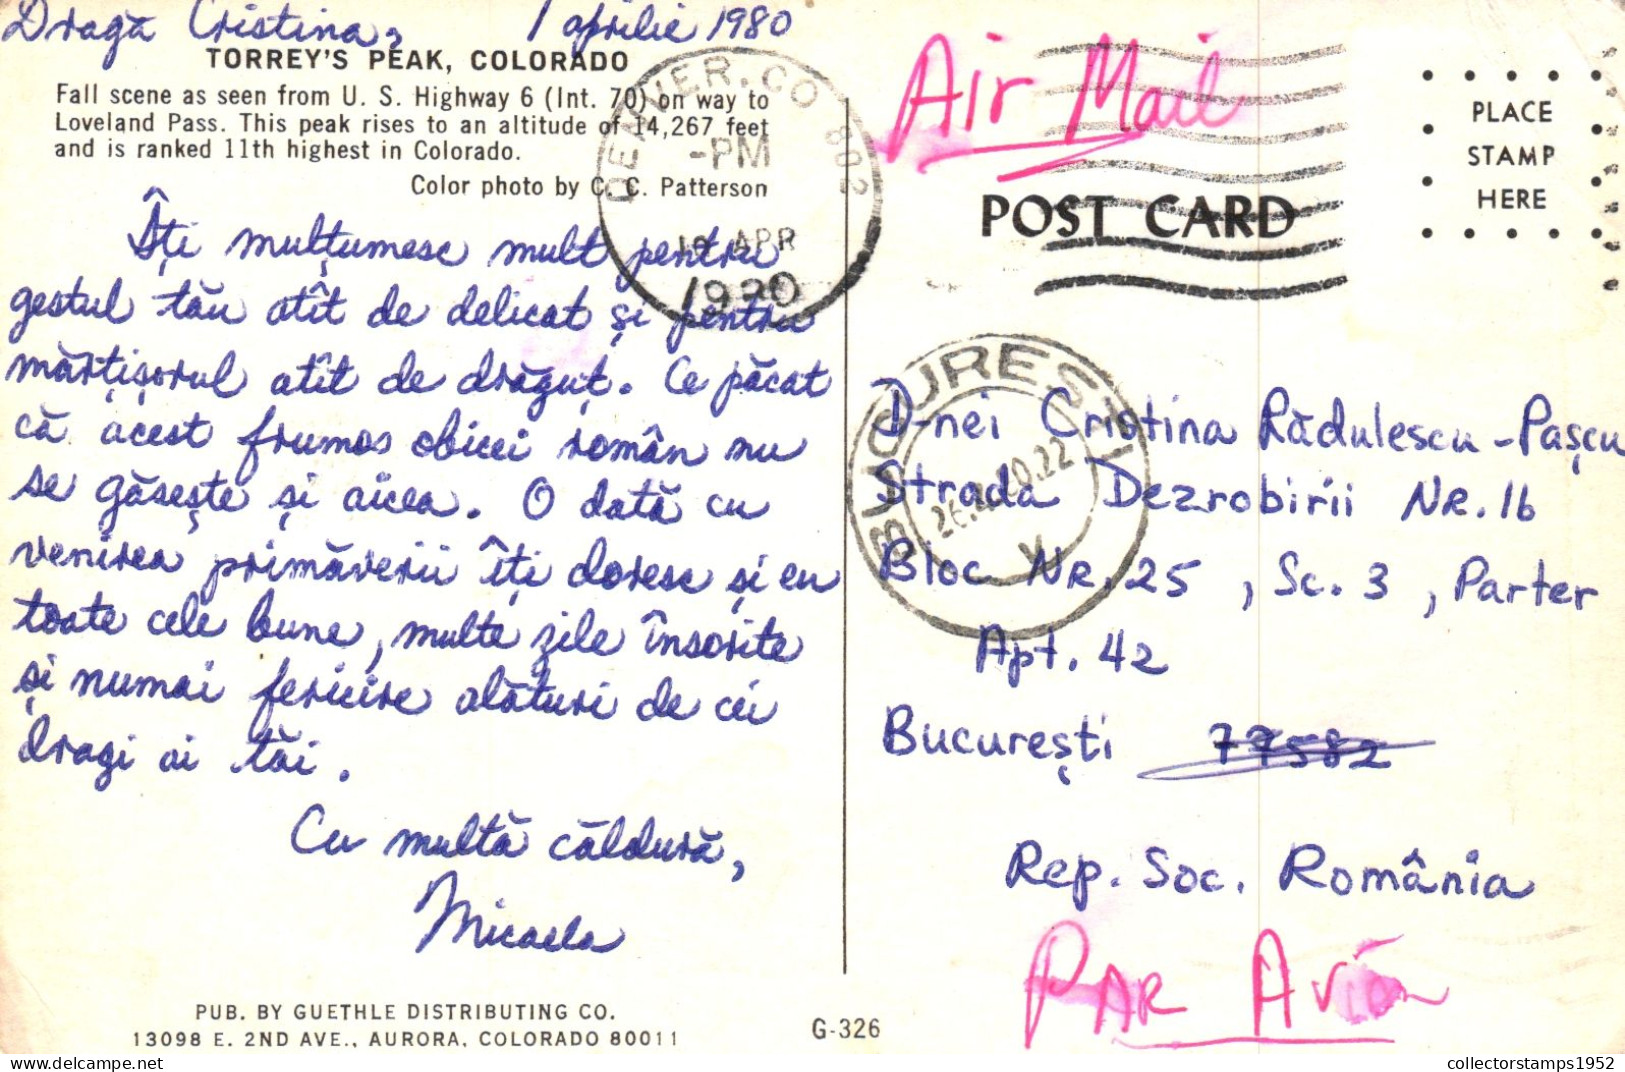 Dragă Cristina, 1 aprilie 1980
TORREY'S PEAK, COLORADO
Fall scene as seen from U. S. Highway 6 (Int. 70) on way to
Loveland Pass. This peak rises to an altitude of 14,267 feet
and is ranked 11th highest in Colorado.
Color photo by C. C. Patterson
Îți mulțumesc mult pentru
gestul tău atît de delicat și pentru
mărțișorul atît de drăguț. Ce păcat
că acest frumos obicei român nu
se găsește și aicea. O dată cu
venirea primăverii îți doresc și eu
toate cele bune, multe zile însorite
și numai fericire alături de cei
dragi ai tăi.
Cu multă căldură,
Micaela
PUB. BY GUETHLE DISTRIBUTING CO.
13098 E. 2ND AVE., AURORA, COLORADO 80011
G-326
DENVER, CO 802
-PM
APR
1980
Air Mail
POST CARD
PLACE
STAMP
HERE
BUCUREȘTI
V
D-nei Cristina Rădulescu-Pașcu
Strada Dezrobirii NR. 16
Bloc NR. 25, Sc. 3, Parter
Apt. 42
București 77582
Rep. Soc. România
PAR Avion
collectorstamps1952